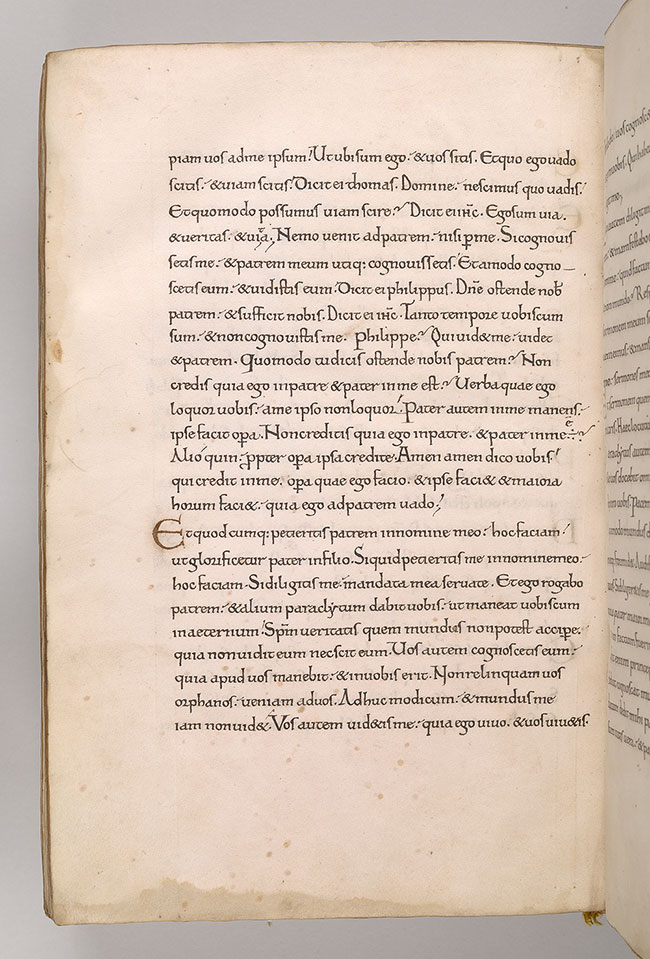 piam uos adme ipsum! Ut ubi sum ego. & uos sitis. Et quo ego uado
scitis. & uiam scitis. Dicit ei thomas. Domine. nescimus quo uadis.
Et quomodo possumus uiam scire? Dicit ei iħc. Ego sum uia.
& ueritas. & uita. Nemo uenit ad patrem. nisi p me. Si cognouis
setis me. & patrem meum utiq; cognouissetis. Et amodo cogno
scetis eum. & uidistis eum. Dicit ei philippus. Dñe ostende nob
patrem. & sufficit nobis. Dicit ei iħc. Tanto tempore uobiscum
sum. & non cognouistis me. Philippe? Qui uid& me. uidet
& patrem. Quomodo tu dicis ostende nobis patrem? Non
credis quia ego in patre & pater in me est? Uerba quae ego
loquor uobis. a me ipso non loquor! Pater autem in me manens.
ipse facit opa. Non creditis quia ego in patre. & pater in me ē?
Alioquin. ppter opa ipsa credite. Amen amen dico uobis!
qui credit in me. opa quae ego facio. & ipse faci&. & maiora
horum faci&. quia ego ad patrem uado!
Et quodcumq; petieritis patrem in nomine meo. hoc faciam!
ut glorificetur pater in filio. Si quid petieritis me in nomine meo.
hoc faciam. Si diligitis me. mandata mea seruate. Et ego rogabo
patrem. & alium paraclytum dabit uobis. ut maneat uobiscum
in aeternum! Spm ueritatis quem mundus non potest accipere.
quia non uidit eum nec scit eum. Uos autem cognoscetis eum.
quia apud uos manebit. & in uobis erit. Non relinquam uos
orphanos. ueniam ad uos. Adhuc modicum. & mundus me
iam non uid&. Vos autem uid&is me. quia ego uiuo. & uos uiu&is.